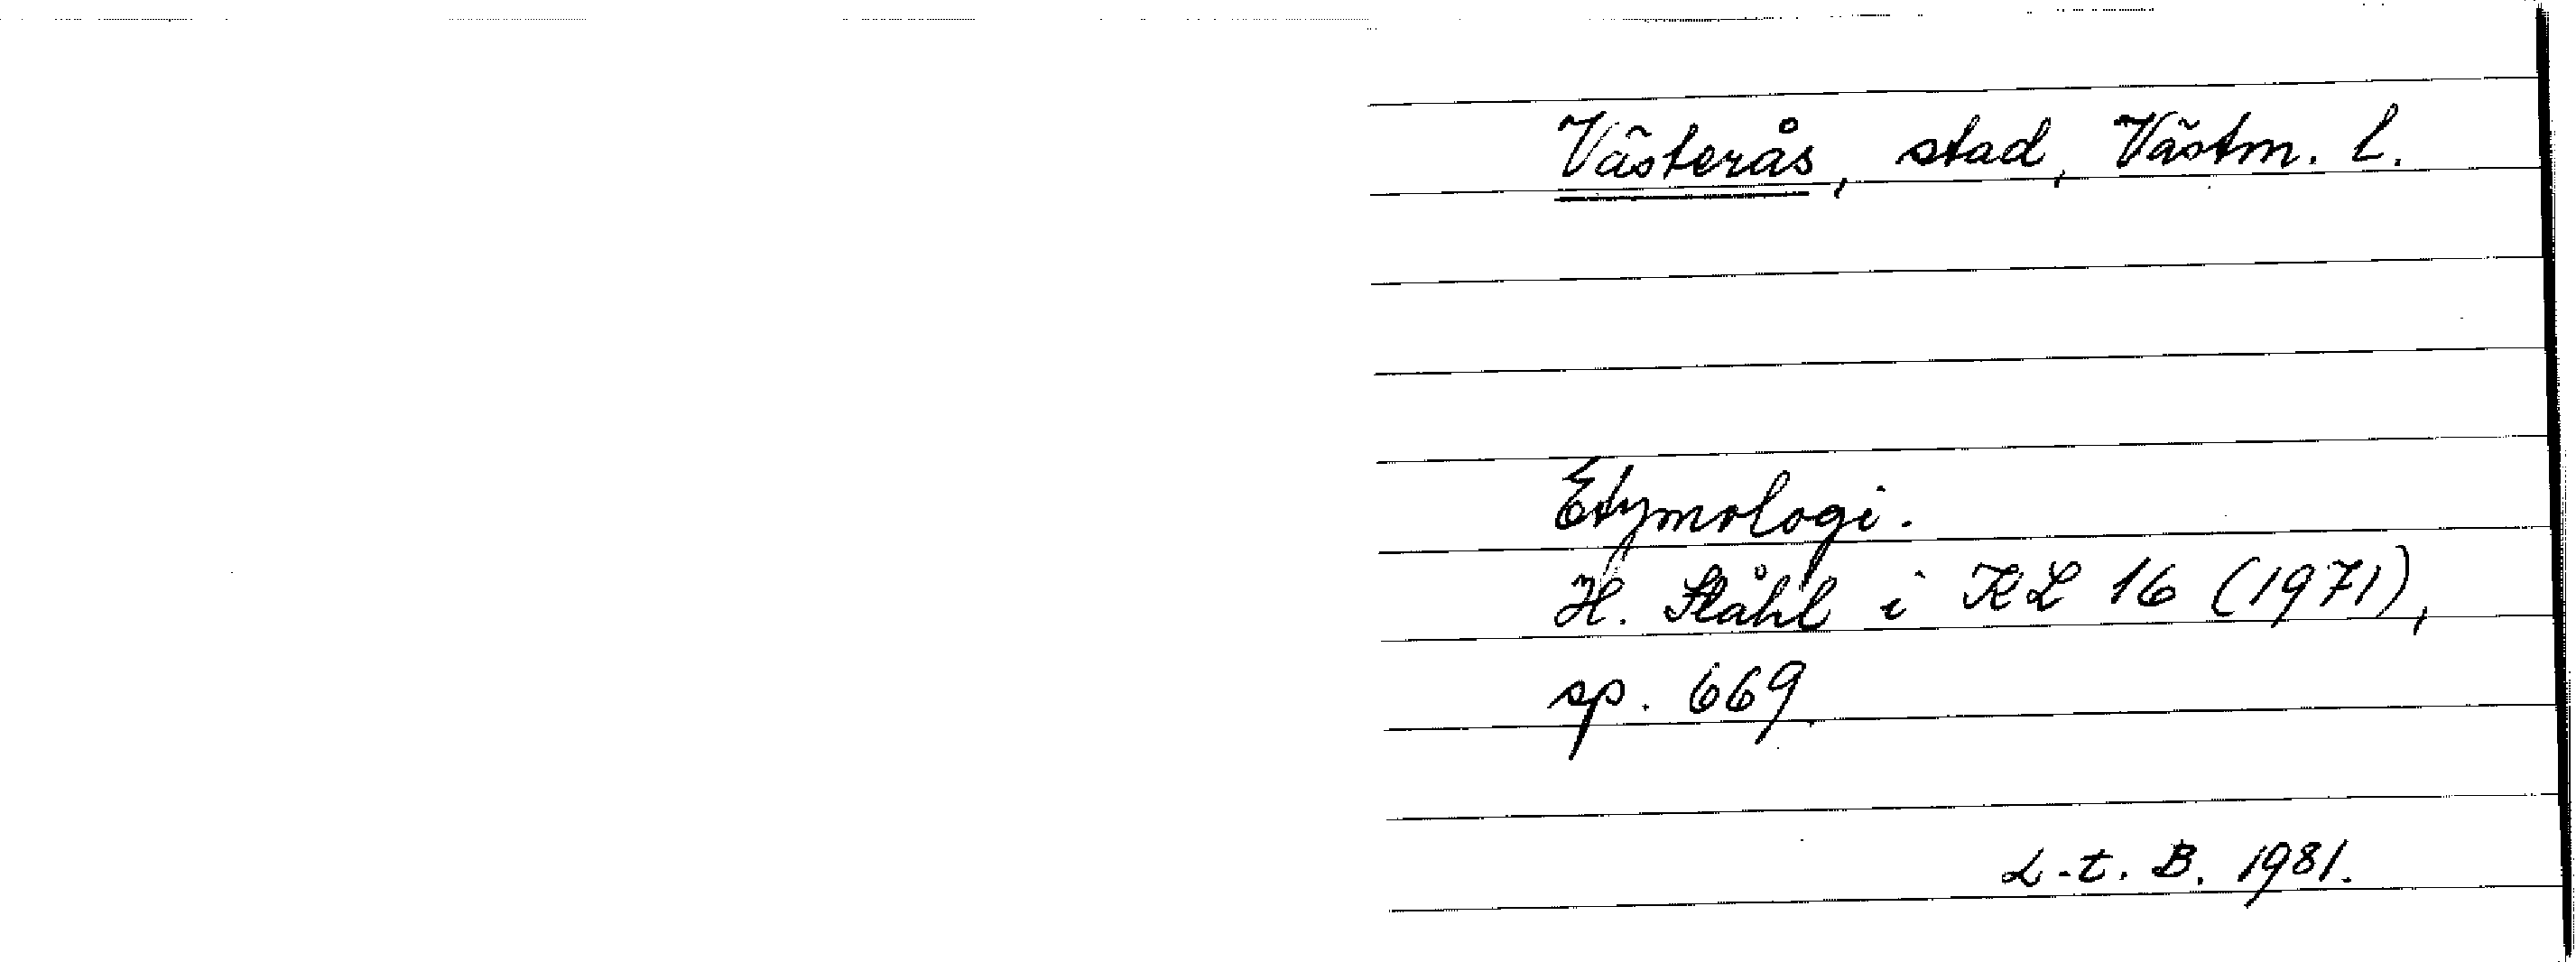 Västerås, stad, Västm. l.
Etymologi.
H. Ståhl i KL 16 (1971),
sp. 669.
L.t.B. 1981.